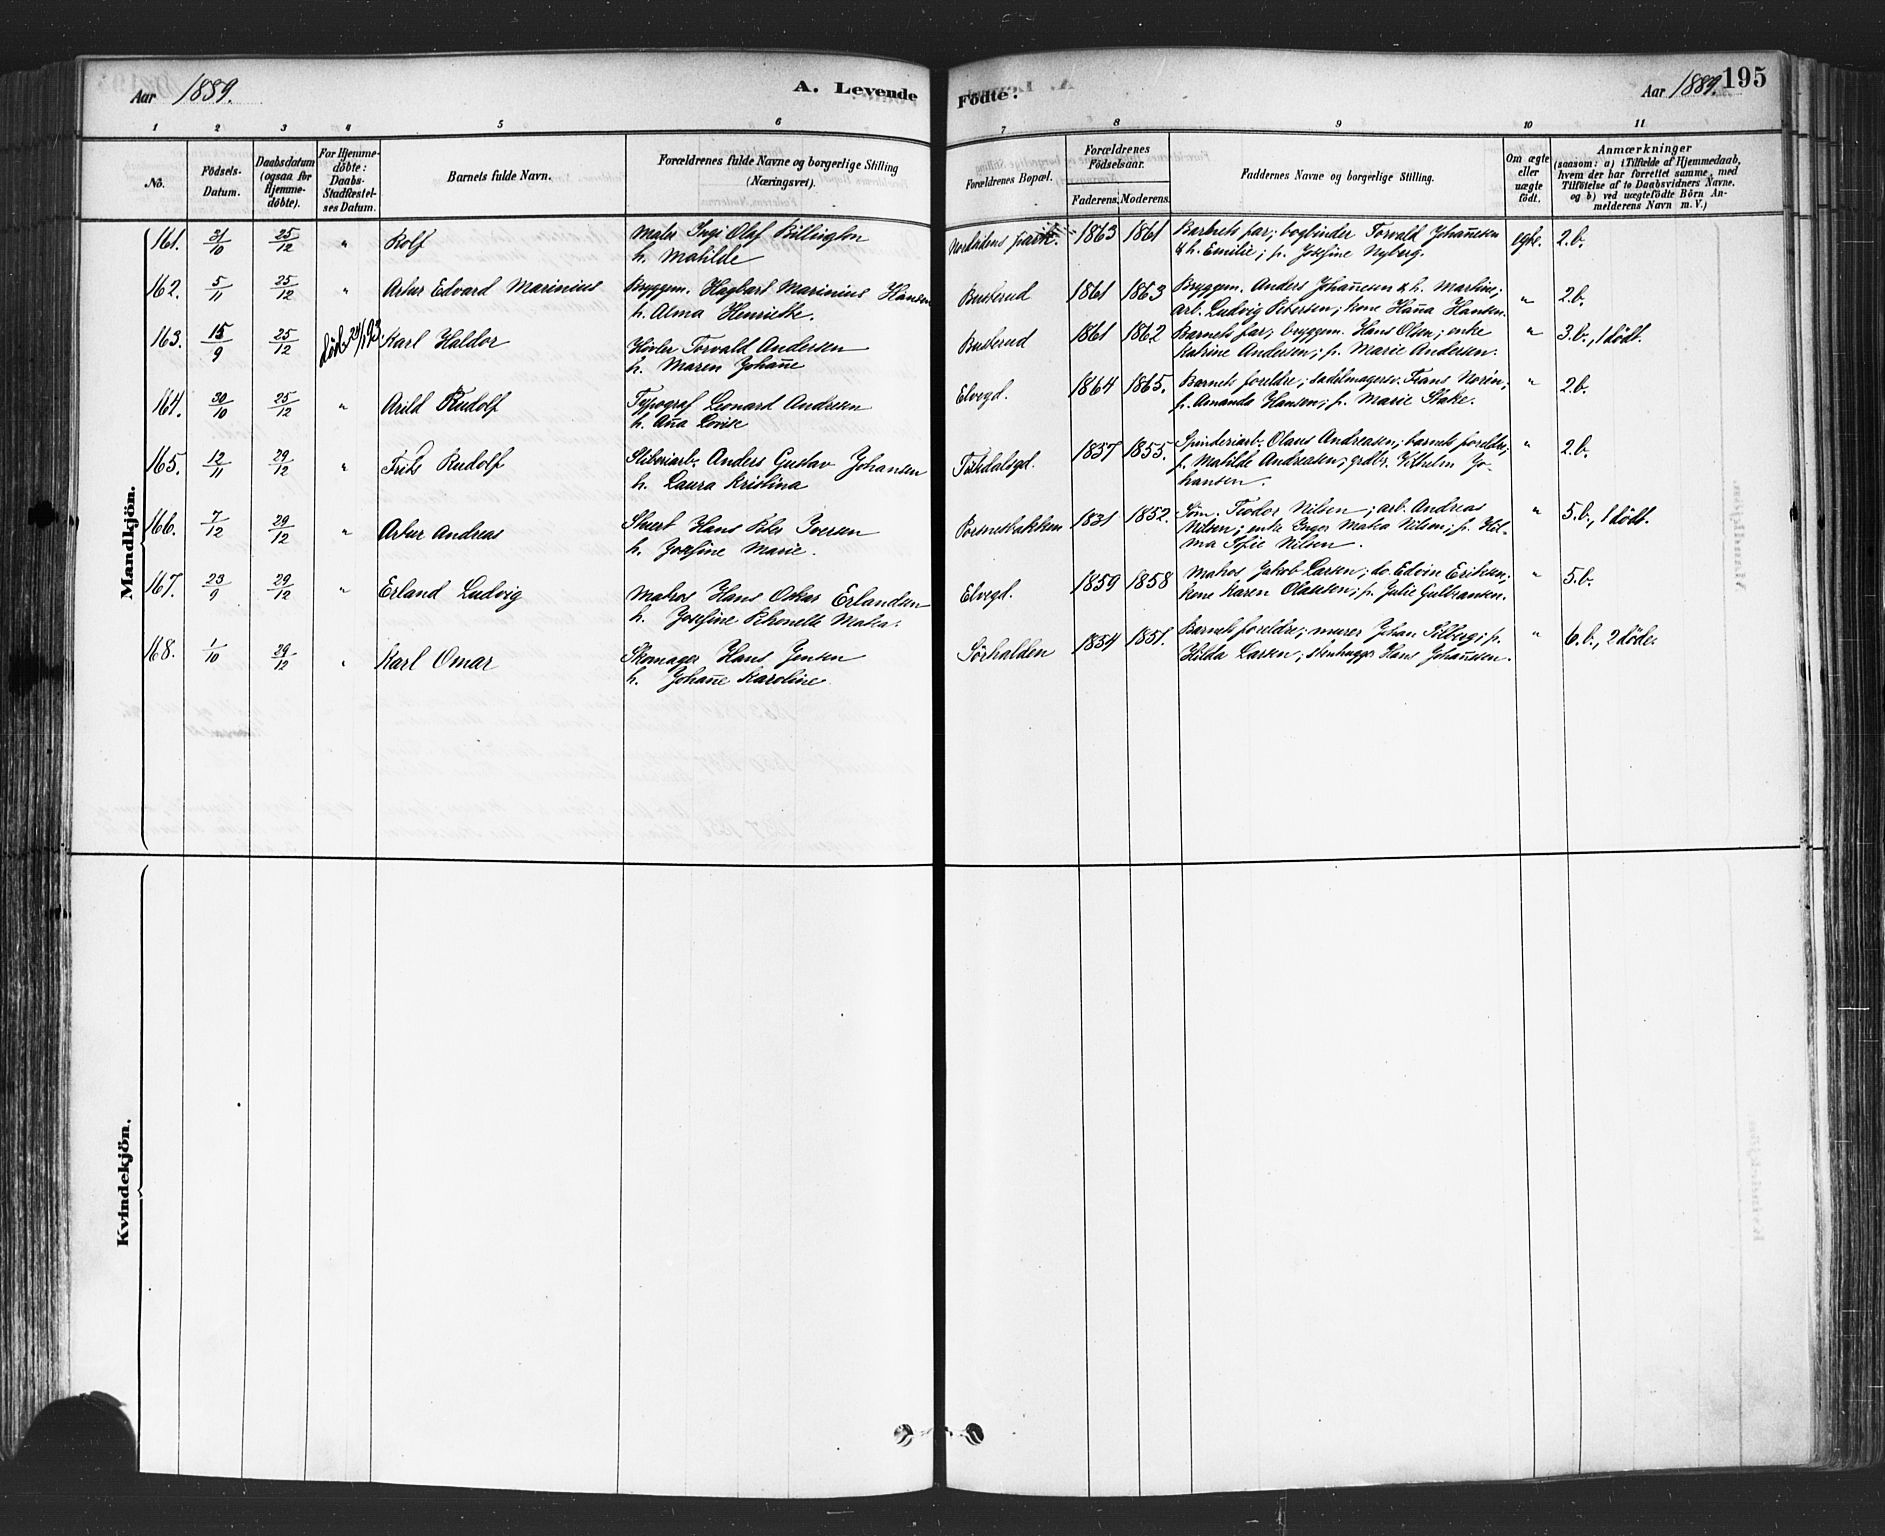 Aar 1889.
A. Levende
Födte.
Aar 1889.
195
1 2 3 4 5 6 7 8 9 10 11
No.
Födsels-
Datum.
Daabsdatum
(ogsaa for
Hjemme-
döbte).
For Hjemme-
döbte:
Daabs-
Stadfæstel-
ses Datum.
Barnets fulde Navn.
Forældrenes fulde Navne og borgerlige Stilling
(Næringsvei).
Forældrenes Bopæl.
Forældrenes
Födselsaar.
Faderens. Moderens.
Faddernes Navne og borgerlige Stilling.
Om ægte
eller
uægte
födt.
Anmærkninger
(saasom: a) i Tilfælde af Hjemmedaab,
hvem der har forrettet samme, med
Tilföielse af to Daabsvidners Navne.
og b) ved uægtefödte Börn An-
melderens Navn m. V.)
Mandkjön.
161. 31/10 25/12 " Rolf
Maler Ingi Olaf Billington
h. Matilde
1863 1861
Barnets far; bogbinder Torvald Johannesen
& h. Emilie; p. Josefine Nyberg.
egte. 2.b.
162. 5/11 25/12 " Artur Edvard Marinius
Bryggem. Hagbart Marinius Hansen
h. Alma Henriette.
Busterud 1861 1863
Bryggem. Anders Johannesen & h. Martine;
arb. Ludvig Petersen; kone Hanna Hansen.
" 2.b.
163. 15/9 25/12 Karl Haldor
Hövler Torvald Andersen
h. Maren Johanne
Busterud 1861 1862
Barnets far; bryggem. Hans Olsen; enke
Katrine Andersen; p. Marie Andersen.
" 3.b., 1 dödt.
164. 30/10 25/12 " Arild Rudolf
Typograf Leonard Andresen
h. Anna Lovise
Elvegd. 1864 1865.
Barnets foreldre; sadelmagersv. Frans Norén;
p. Amanda Hansen; p. Marie Stake.
" 2.b.
165. 12/11 29/12 " Frits Rudolf
Sliberiarb. Anders Gustav Johansen
h. Laura Kristina
1857 1855.
Spinderiarb. Olaus Andreasen; barnets foreldre;
p. Matilde Andreasen; grdbr. Vilhelm Jo-
hansen.
" 2.b.
166. 7/12 29/12 " Artur Andreas
Stuert Hans Peter Iversen
h. Josefine Marie.
Porsnesbakken 1831 1852.
Töm. Teodor Nilsen; arb. Andreas
Nilsen; enke Inger Matea Nilsen; p. Hil-
ma Sofie Nilsen.
" 5.b., 1 dödt.
167. 23/9 29/12 " Erland Ludvig
Matros Hans Oskar Erlandsen
h. Josefine Petronelle Matea.
Elvegd. 1859 1858
Matros Jakob Larsen; do. Edvin Eriksen;
kone Karen Olaussen; p. Julie Gulbransen.
" 5.b.
168. 1/10 29/12 " Karl Omar
Skomager Hans Jensen
h. Johanne Karoline
Sörhalden 1854 1851.
Barnets foreldre; murer Johan Solberg; p.
Hilda Larsen; stenhugger Hans Johanssen.
" 6.b., 2 döde.
Kvindekjön.